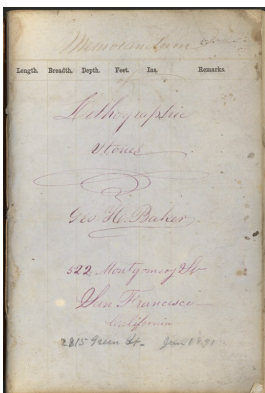 Memorandum
Length. Breadth. Depth. Feet. Ins. Remarks.
Lithographic
Stones
Geo. H. Baker
522 Montgomery St
San Francisco
California
2815 Green St. Jan 1891